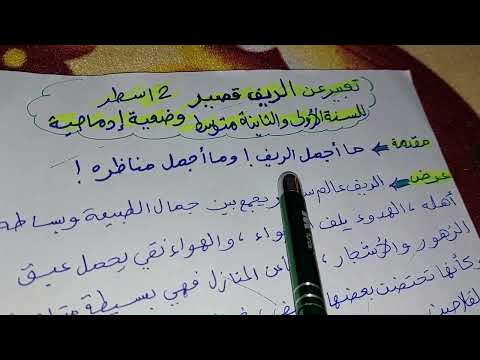 تعبير عن الريف قصير 12 اسطر
للسنة الأولى والثانية متوسط وضعية إدماجية
مقدمة ← ما أجمل الريف! وما أجمل مناظره!
عرض ← الريف عالم يجمع بين جمال الطبيعة وبساطة
أهله، الهدوء يلف، والهواء نقي يحمل عبق
الزهور والأشجار، المنازل فهي بسيطة
وكأنها تحتضن بعضها